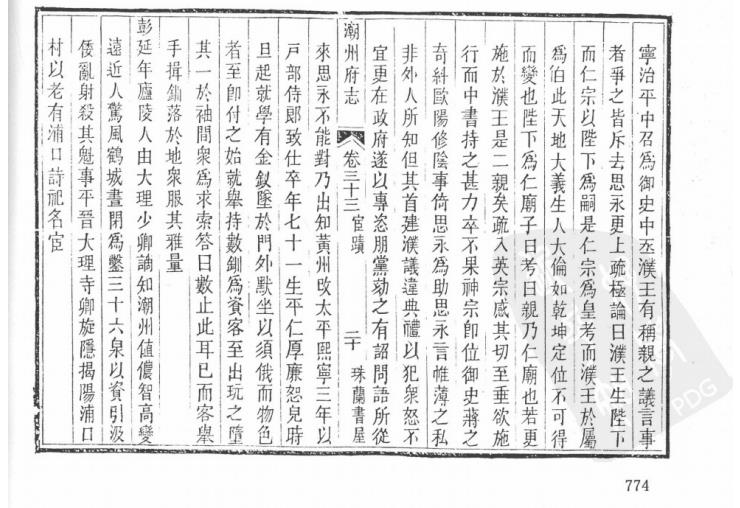 寧治平中召爲御史中丞濮王有稱親之議言事
者爭之皆斥去思永更上疏極論曰濮王生陛下
而仁宗以陛下爲嗣是仁宗爲皇考而濮王於屬
爲伯此天地大義生人大倫如乾坤定位不可得
而變也陛下爲仁廟子曰考曰親乃仁廟也若更
施於濮王是二親矣疏入英宗感其切至垂欲施
行而中書持之甚力卒不果神宗卽位御史蔣之
奇糾歐陽修陰事倚思永爲助思永言帷薄之私
非外人所知但其首建濮議違典禮以犯衆怒不
宜更在政府遂以專恣朋黨劾之有詔問語所從
潮州府志 卷三十三 宦蹟 二十 珠蘭書屋
來思永不能對乃出知黃州改太平熙寧三年以
戸部侍郞致仕卒年七十一生平仁厚廉恕兒時
旦起就學有金釵墜於門外默坐以須俄而物色
者至卽付之始就舉持數釧爲資客至出玩之墮
其一於袖間衆爲求索答曰數止此耳已而客舉
手揖釧落於地衆服其雅量
彭延年廬陵人由大理少卿謫知潮州値儂智高變
遠近人驚風鶴城晝閉爲鑿三十六泉以資引汲
倭亂射殺其魁事平晉大理寺卿旋隱揭陽浦口
村以老有浦口詩祀名宦
774
PDG